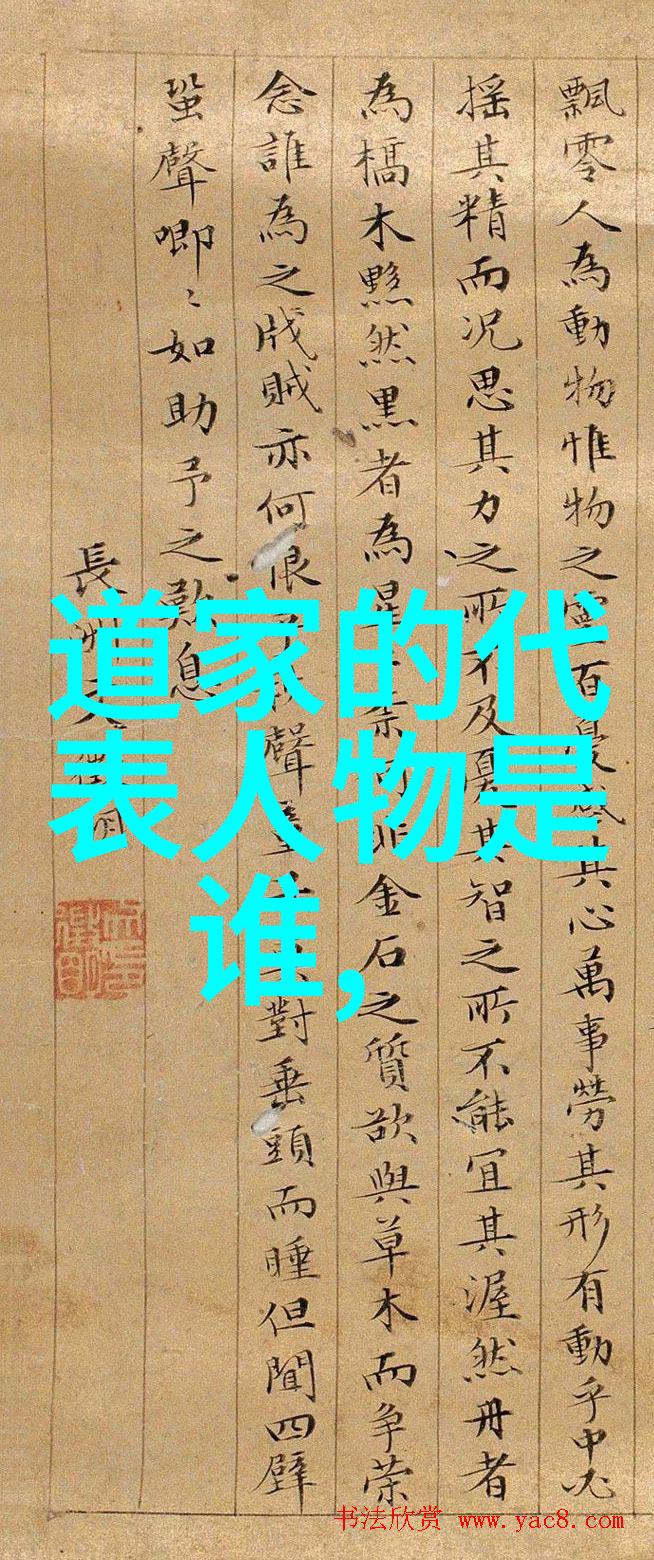 飄零人為動物惟物之靈百憂感其心萬事勞其形有動乎中必
搖其精而况思其力之所不及憂其智之所不能宜其渥然丹者
為橋木黟然黒者為星奈何非金石之質欲與草木而争荣
念誰為之戕賊亦何恨乎秋聲童子莫對垂頭而睡但聞四壁
蛩聲唧〻如助予之歎息
長洲文徵明
道家的代
表人物是
谁,
书法欣赏 www.yac8.com